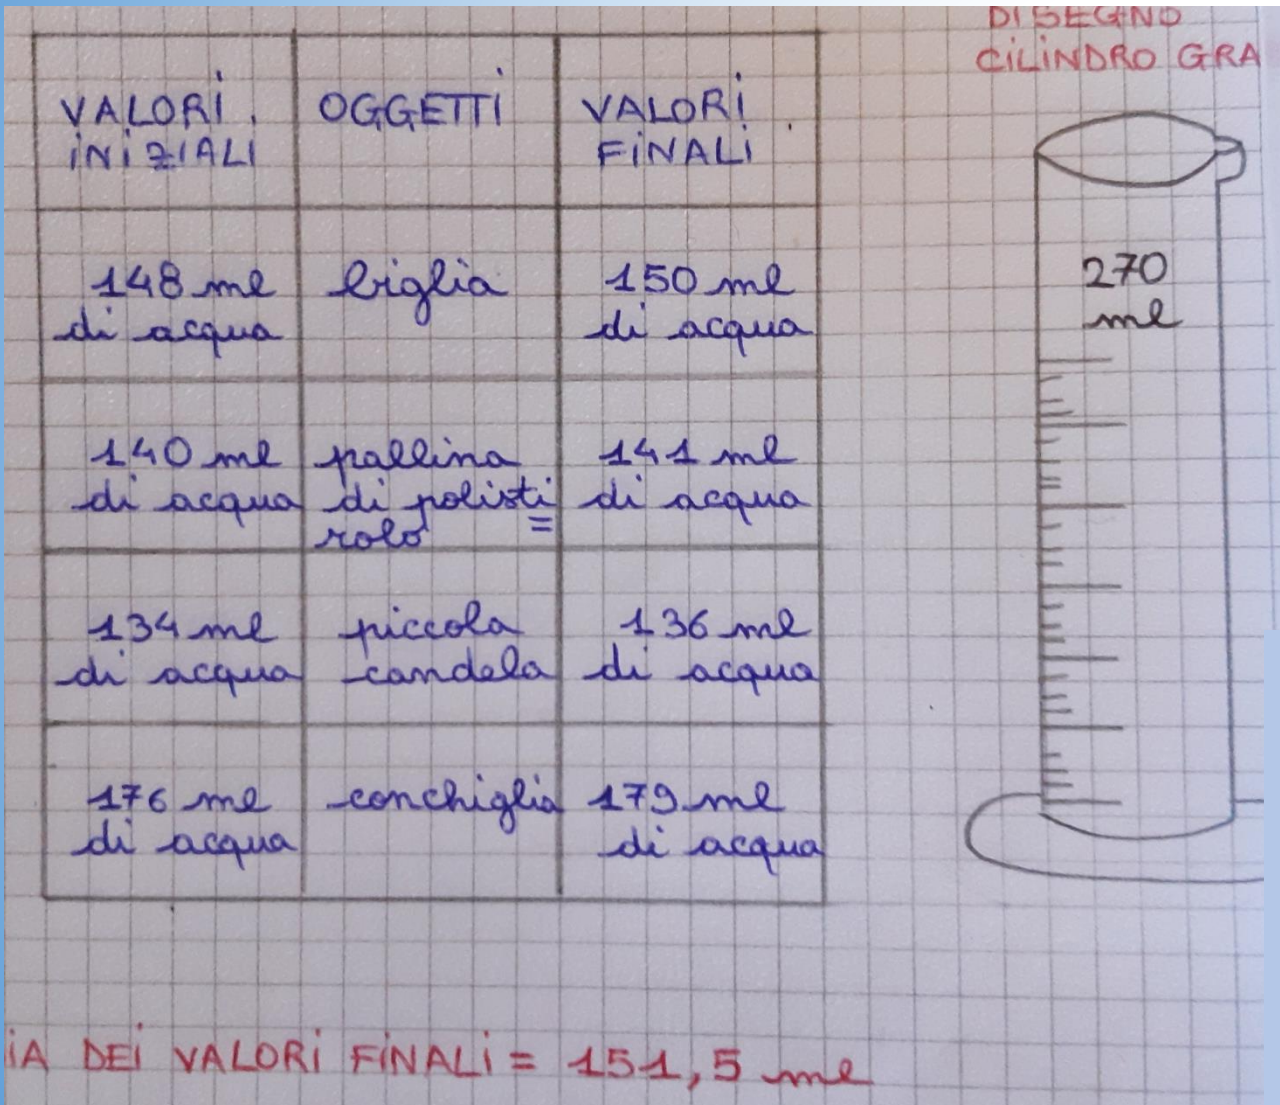 DISEGNO
CILINDRO GRA
VALORI INIZIALI
OGGETTI
VALORI FINALI
148 ml di acqua
biglia
150 ml di acqua
140 ml di acqua
pallina di polisti= rolo
141 ml di acqua
134 ml di acqua
piccola candela
136 ml di acqua
176 ml di acqua
conchiglia
179 ml di acqua
270
ml
IA DEI VALORI FINALI = 151,5 ml